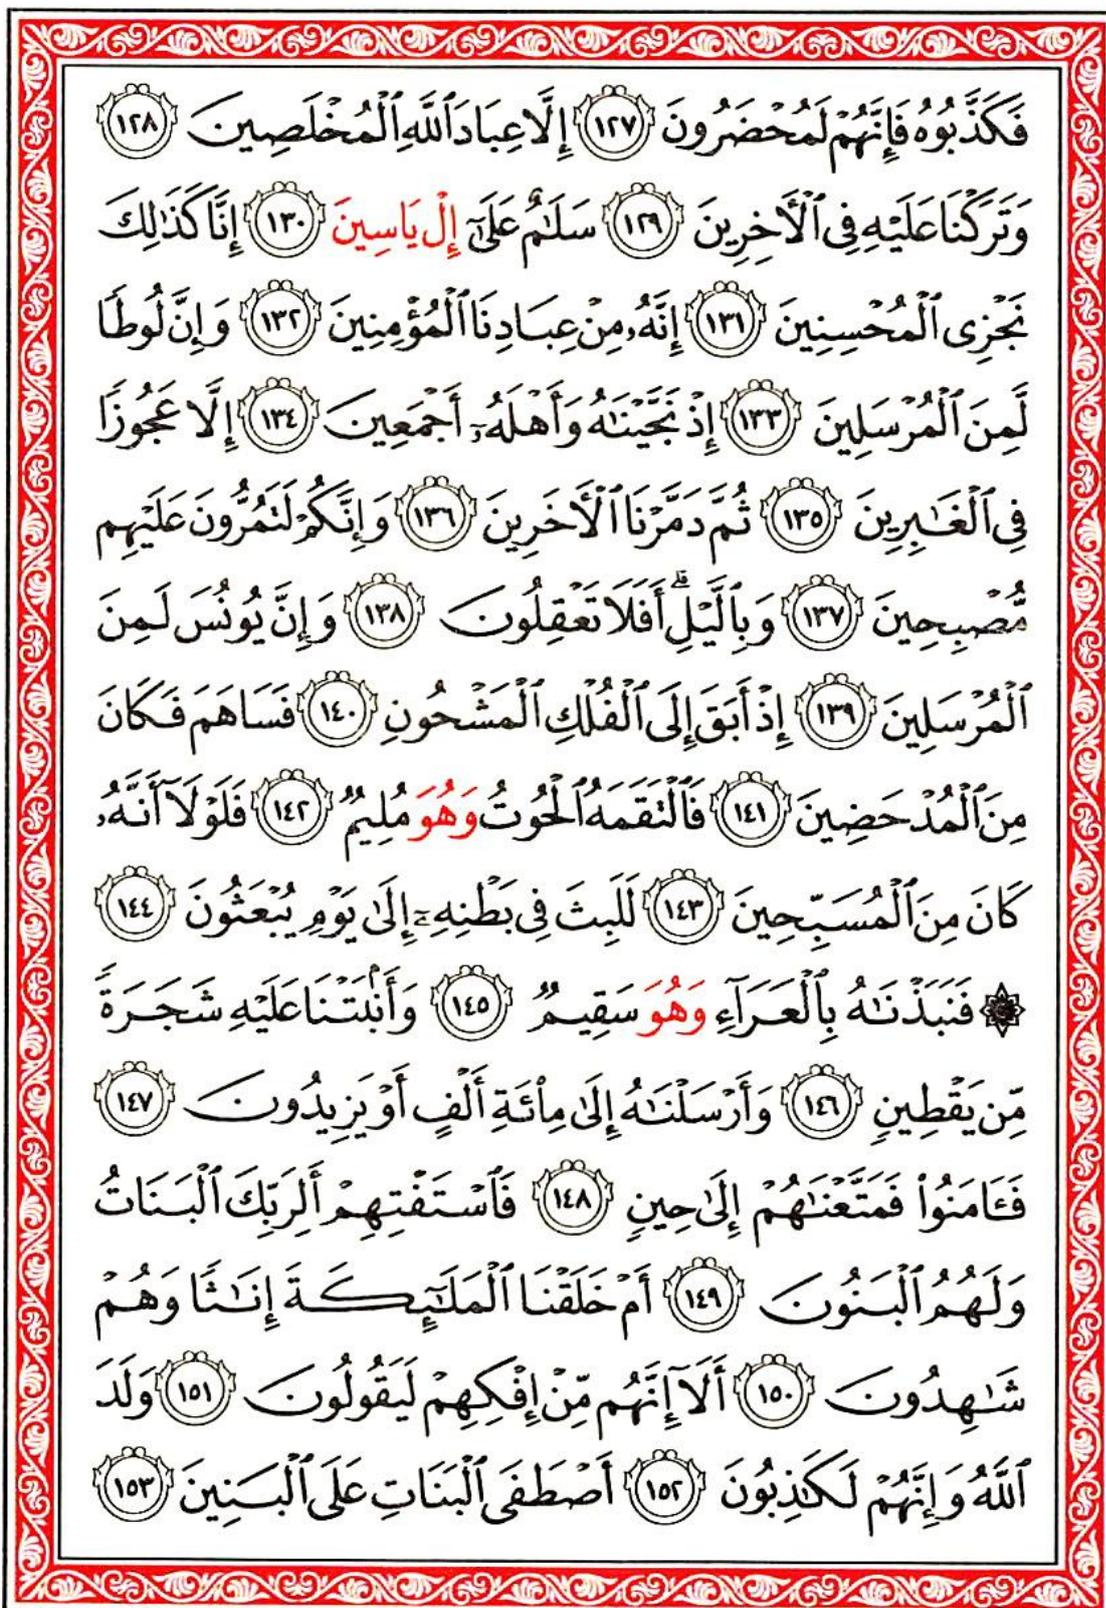 فَكَذَّبُوهُ فَإِنَّهُمْ لَمُحْضَرُونَ ١٢٧ إِلَّا عِبَادَ ٱللَّهِ ٱلْمُخْلَصِينَ ١٢٨
وَتَرَكْنَا عَلَيْهِ فِى ٱلْأَخِرِينَ ١٢٩ سَلَٰمٌ عَلَىٰٓ إِلْ يَاسِينَ ١٣٠ إِنَّا كَذَٰلِكَ
نَجْزِى ٱلْمُحْسِنِينَ ١٣١ إِنَّهُۥ مِنْ عِبَادِنَا ٱلْمُؤْمِنِينَ ١٣٢ وَإِنَّ لُوطًا
لَّمِنَ ٱلْمُرْسَلِينَ ١٣٣ إِذْ نَجَّيْنَٰهُ وَأَهْلَهُۥٓ أَجْمَعِينَ ١٣٤ إِلَّا عَجُوزًا
فِى ٱلْغَٰبِرِينَ ١٣٥ ثُمَّ دَمَّرْنَا ٱلْأَخَرِينَ ١٣٦ وَإِنَّكُمْ لَتَمُرُّونَ عَلَيْهِم
مُّصْبِحِينَ ١٣٧ وَبِٱلَّيْلِۗ أَفَلَا تَعْقِلُونَ ١٣٨ وَإِنَّ يُونُسَ لَمِنَ
ٱلْمُرْسَلِينَ ١٣٩ إِذْ أَبَقَ إِلَى ٱلْفُلْكِ ٱلْمَشْحُونِ ١٤٠ فَسَاهَمَ فَكَانَ
مِنَ ٱلْمُدْحَضِينَ ١٤١ فَٱلْتَقَمَهُ ٱلْحُوتُ وَهُوَ مُلِيمٌ ١٤٢ فَلَوْلَآ أَنَّهُۥ
كَانَ مِنَ ٱلْمُسَبِّحِينَ ١٤٣ لَلَبِثَ فِى بَطْنِهِۦٓ إِلَىٰ يَوْمِ يُبْعَثُونَ ١٤٤
۞ فَنَبَذْنَٰهُ بِٱلْعَرَآءِ وَهُوَ سَقِيمٌ ١٤٥ وَأَنۢبَتْنَا عَلَيْهِ شَجَرَةً
مِّن يَقْطِينٍ ١٤٦ وَأَرْسَلْنَٰهُ إِلَىٰ مِا۟ئَةِ أَلْفٍ أَوْ يَزِيدُونَ ١٤٧
فَـَٔامَنُوا۟ فَمَتَّعْنَٰهُمْ إِلَىٰ حِينٍ ١٤٨ فَٱسْتَفْتِهِمْ أَلِرَبِّكَ ٱلْبَنَاتُ
وَلَهُمُ ٱلْبَنُونَ ١٤٩ أَمْ خَلَقْنَا ٱلْمَلَٰٓئِكَةَ إِنَٰثًا وَهُمْ
شَٰهِدُونَ ١٥٠ أَلَآ إِنَّهُم مِّنْ إِفْكِهِمْ لَيَقُولُونَ ١٥١ وَلَدَ
ٱللَّهُ وَإِنَّهُمْ لَكَٰذِبُونَ ١٥٢ أَصْطَفَى ٱلْبَنَاتِ عَلَى ٱلْبَنِينَ ١٥٣